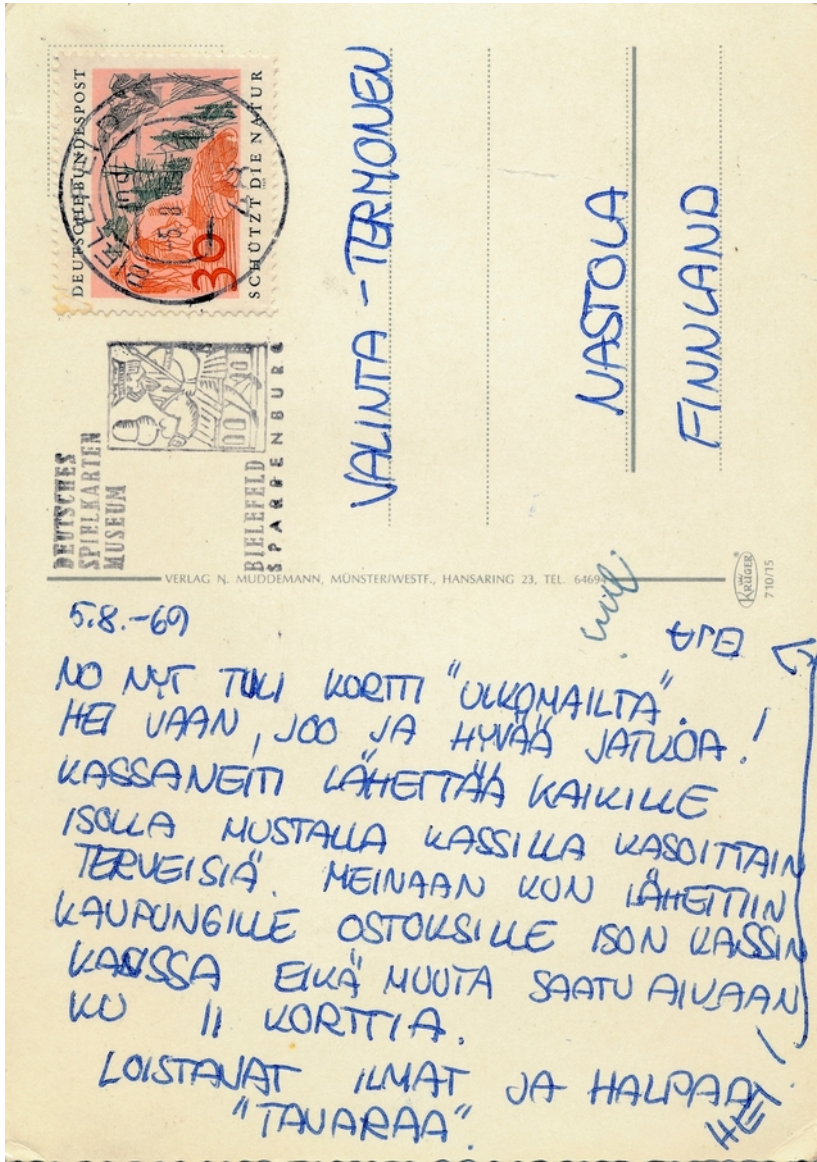 DEUTSCHE BUNDESPOST
30
SCHÜTZT DIE NATUR
BIELEFELD
48
DEUTSCHES
SPIELKARTEN
MUSEUM
BIELEFELD
SPARRENBURG
VALINTA - TERMONEN
NASTOLA
FINNLAND
VERLAG N. MUDDEMANN, MÜNSTER/WESTF., HANSARING 23, TEL. 64694
KRÜGER
710/15
5.8.-69
NO NYT TULI KORTTI "ULKOMAILTA".
HEI VAAN, JOO JA HYVÄÄ JATKOA!
KASSANEITI LÄHETTÄÄ KAIKILLE
ISOLLA MUSTALLA KASSILLA KASOITTAIN
TERVEISIÄ. MEINAAN KUN LÄHETTIIN
KAUPUNGILLE OSTOKSILLE ISON KASSIN
KANSSA EIKÄ MUUTA SAATU AIKAAN
KU 11 KORTTIA.
LOISTAVAT ILMAT JA HALPAA
"TAVARAA".
HEI!